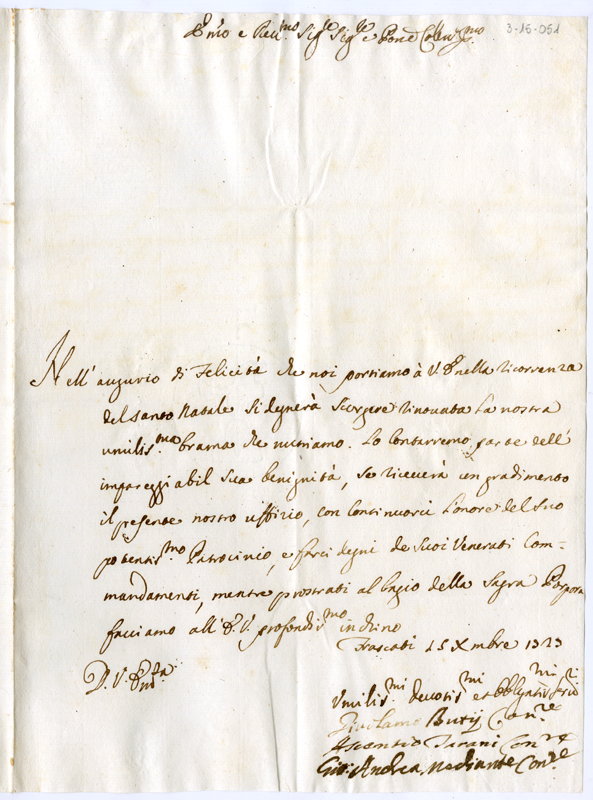 3-15-051
Emo e Revmo Sigre Sigre e Pone Colendmo
Nell' augurio di Felicità che noi portiamo à V. E. nella ricorrenza
del santo Natale si degnerà scorgere rinovata la nostra
umilisma brama che nutriamo. Lo contarremo parte dell'
impareggiabil sua benignità, se riceverà in gradimento
il presente nostro uffizio, con continuarci l'onore del suo
potentismo Patrocinio, e farci degni de suoi Venerati Com-
mandamenti, mentre prostrati al bagio della Sagra Porpora
facciamo all' E. V. profondismo inchino
Frascati 15 Xmbre 1723
D. V. Emza
Umilismi devotismi et obbligatismi
Girolamo Butij Conre
Ascentio Conre
Gio: Andrea Conre